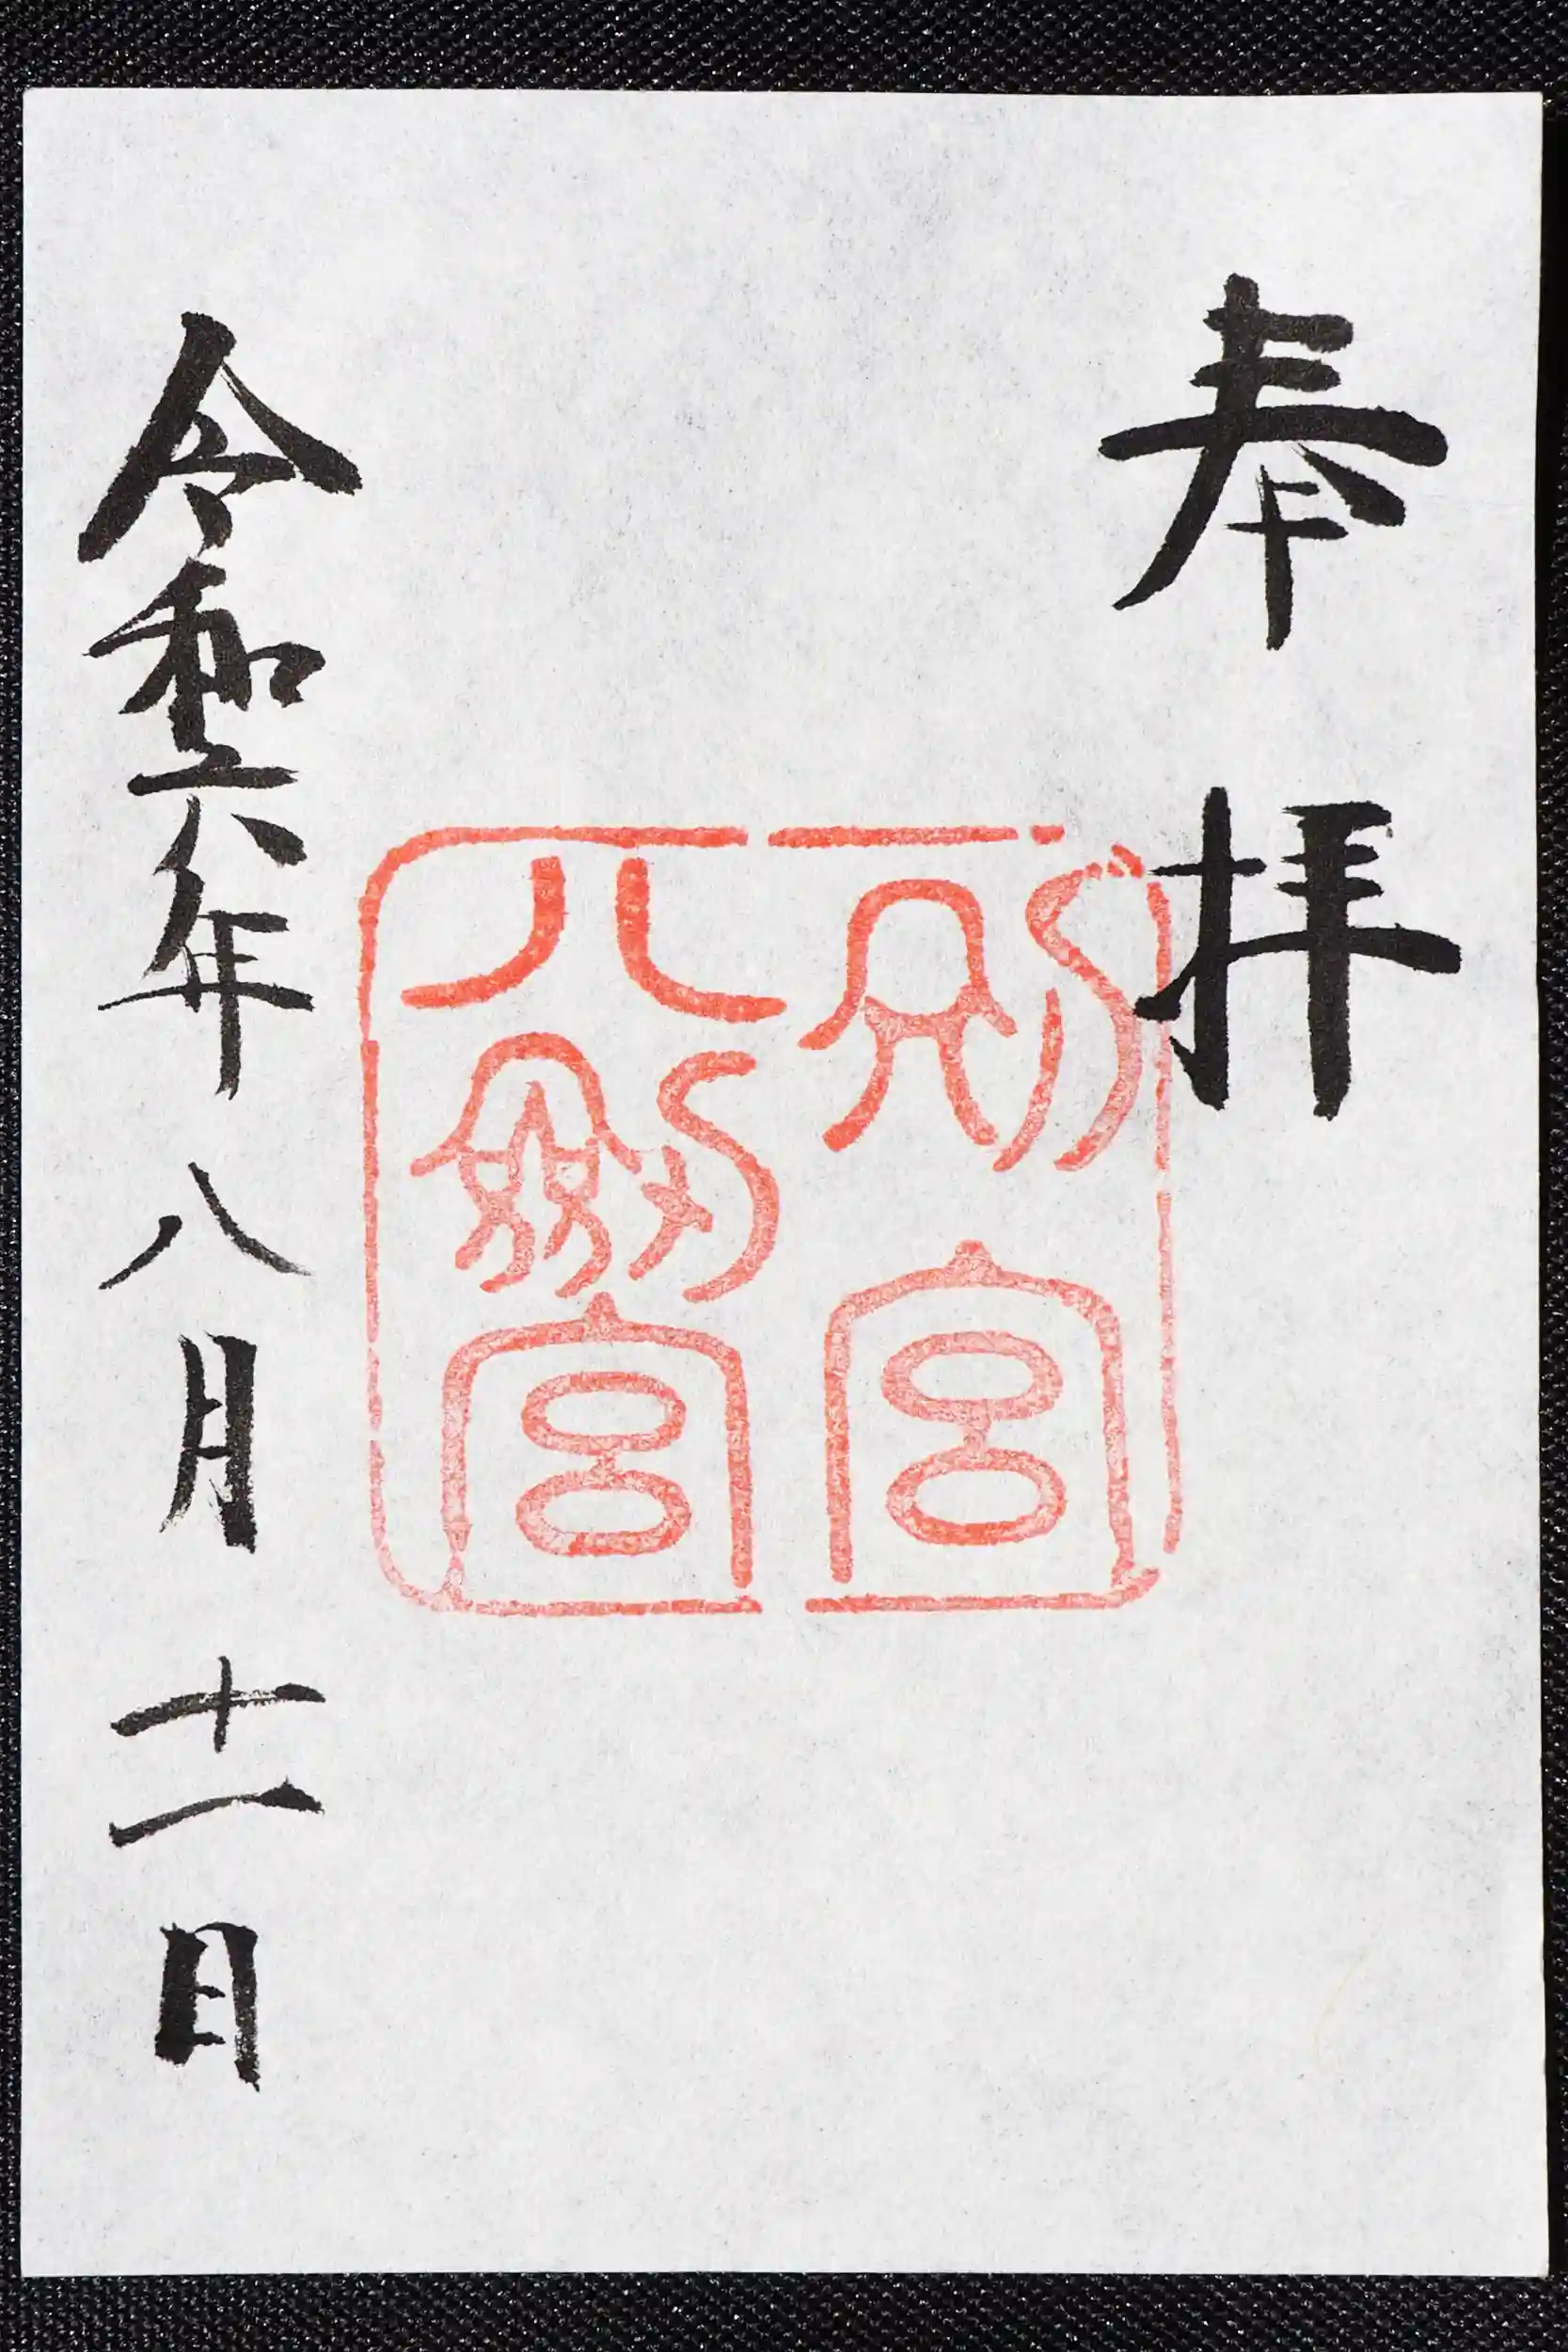 奉拝
別宮
八劒宮
令和六年八月十一日